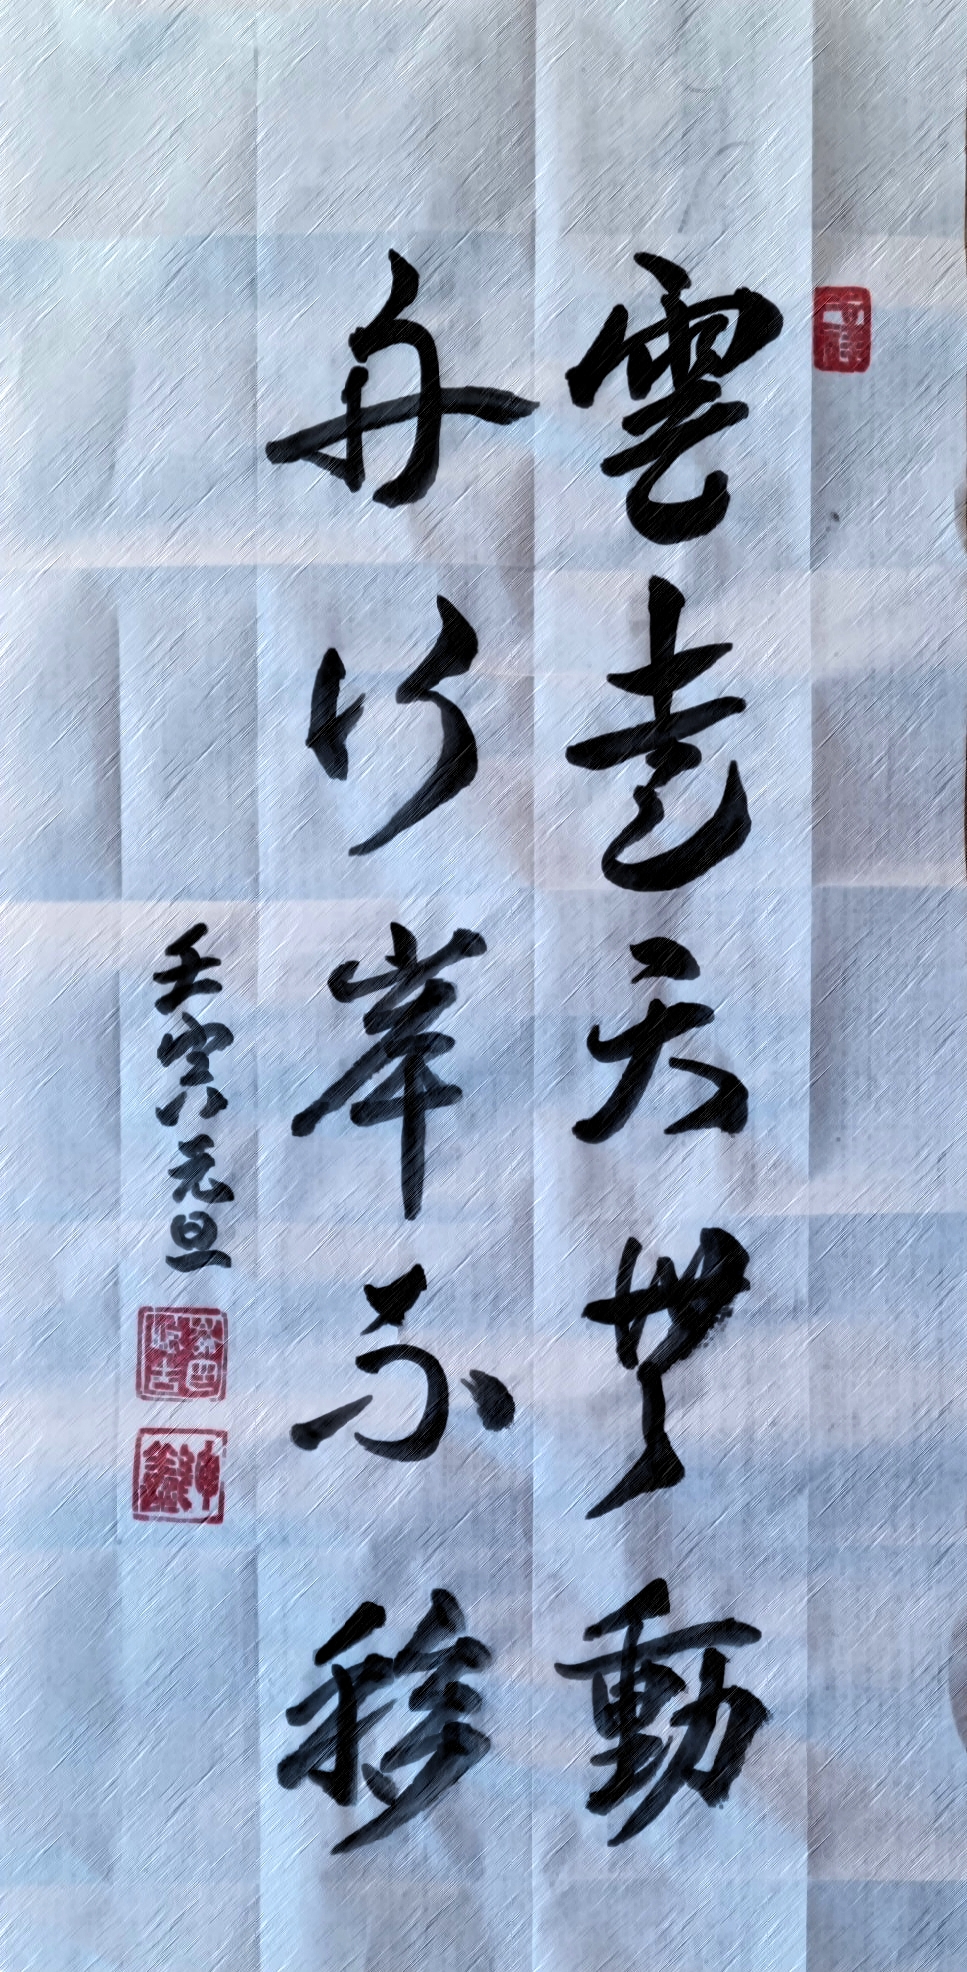 雲走天無動
舟行岸不移
壬寅元旦